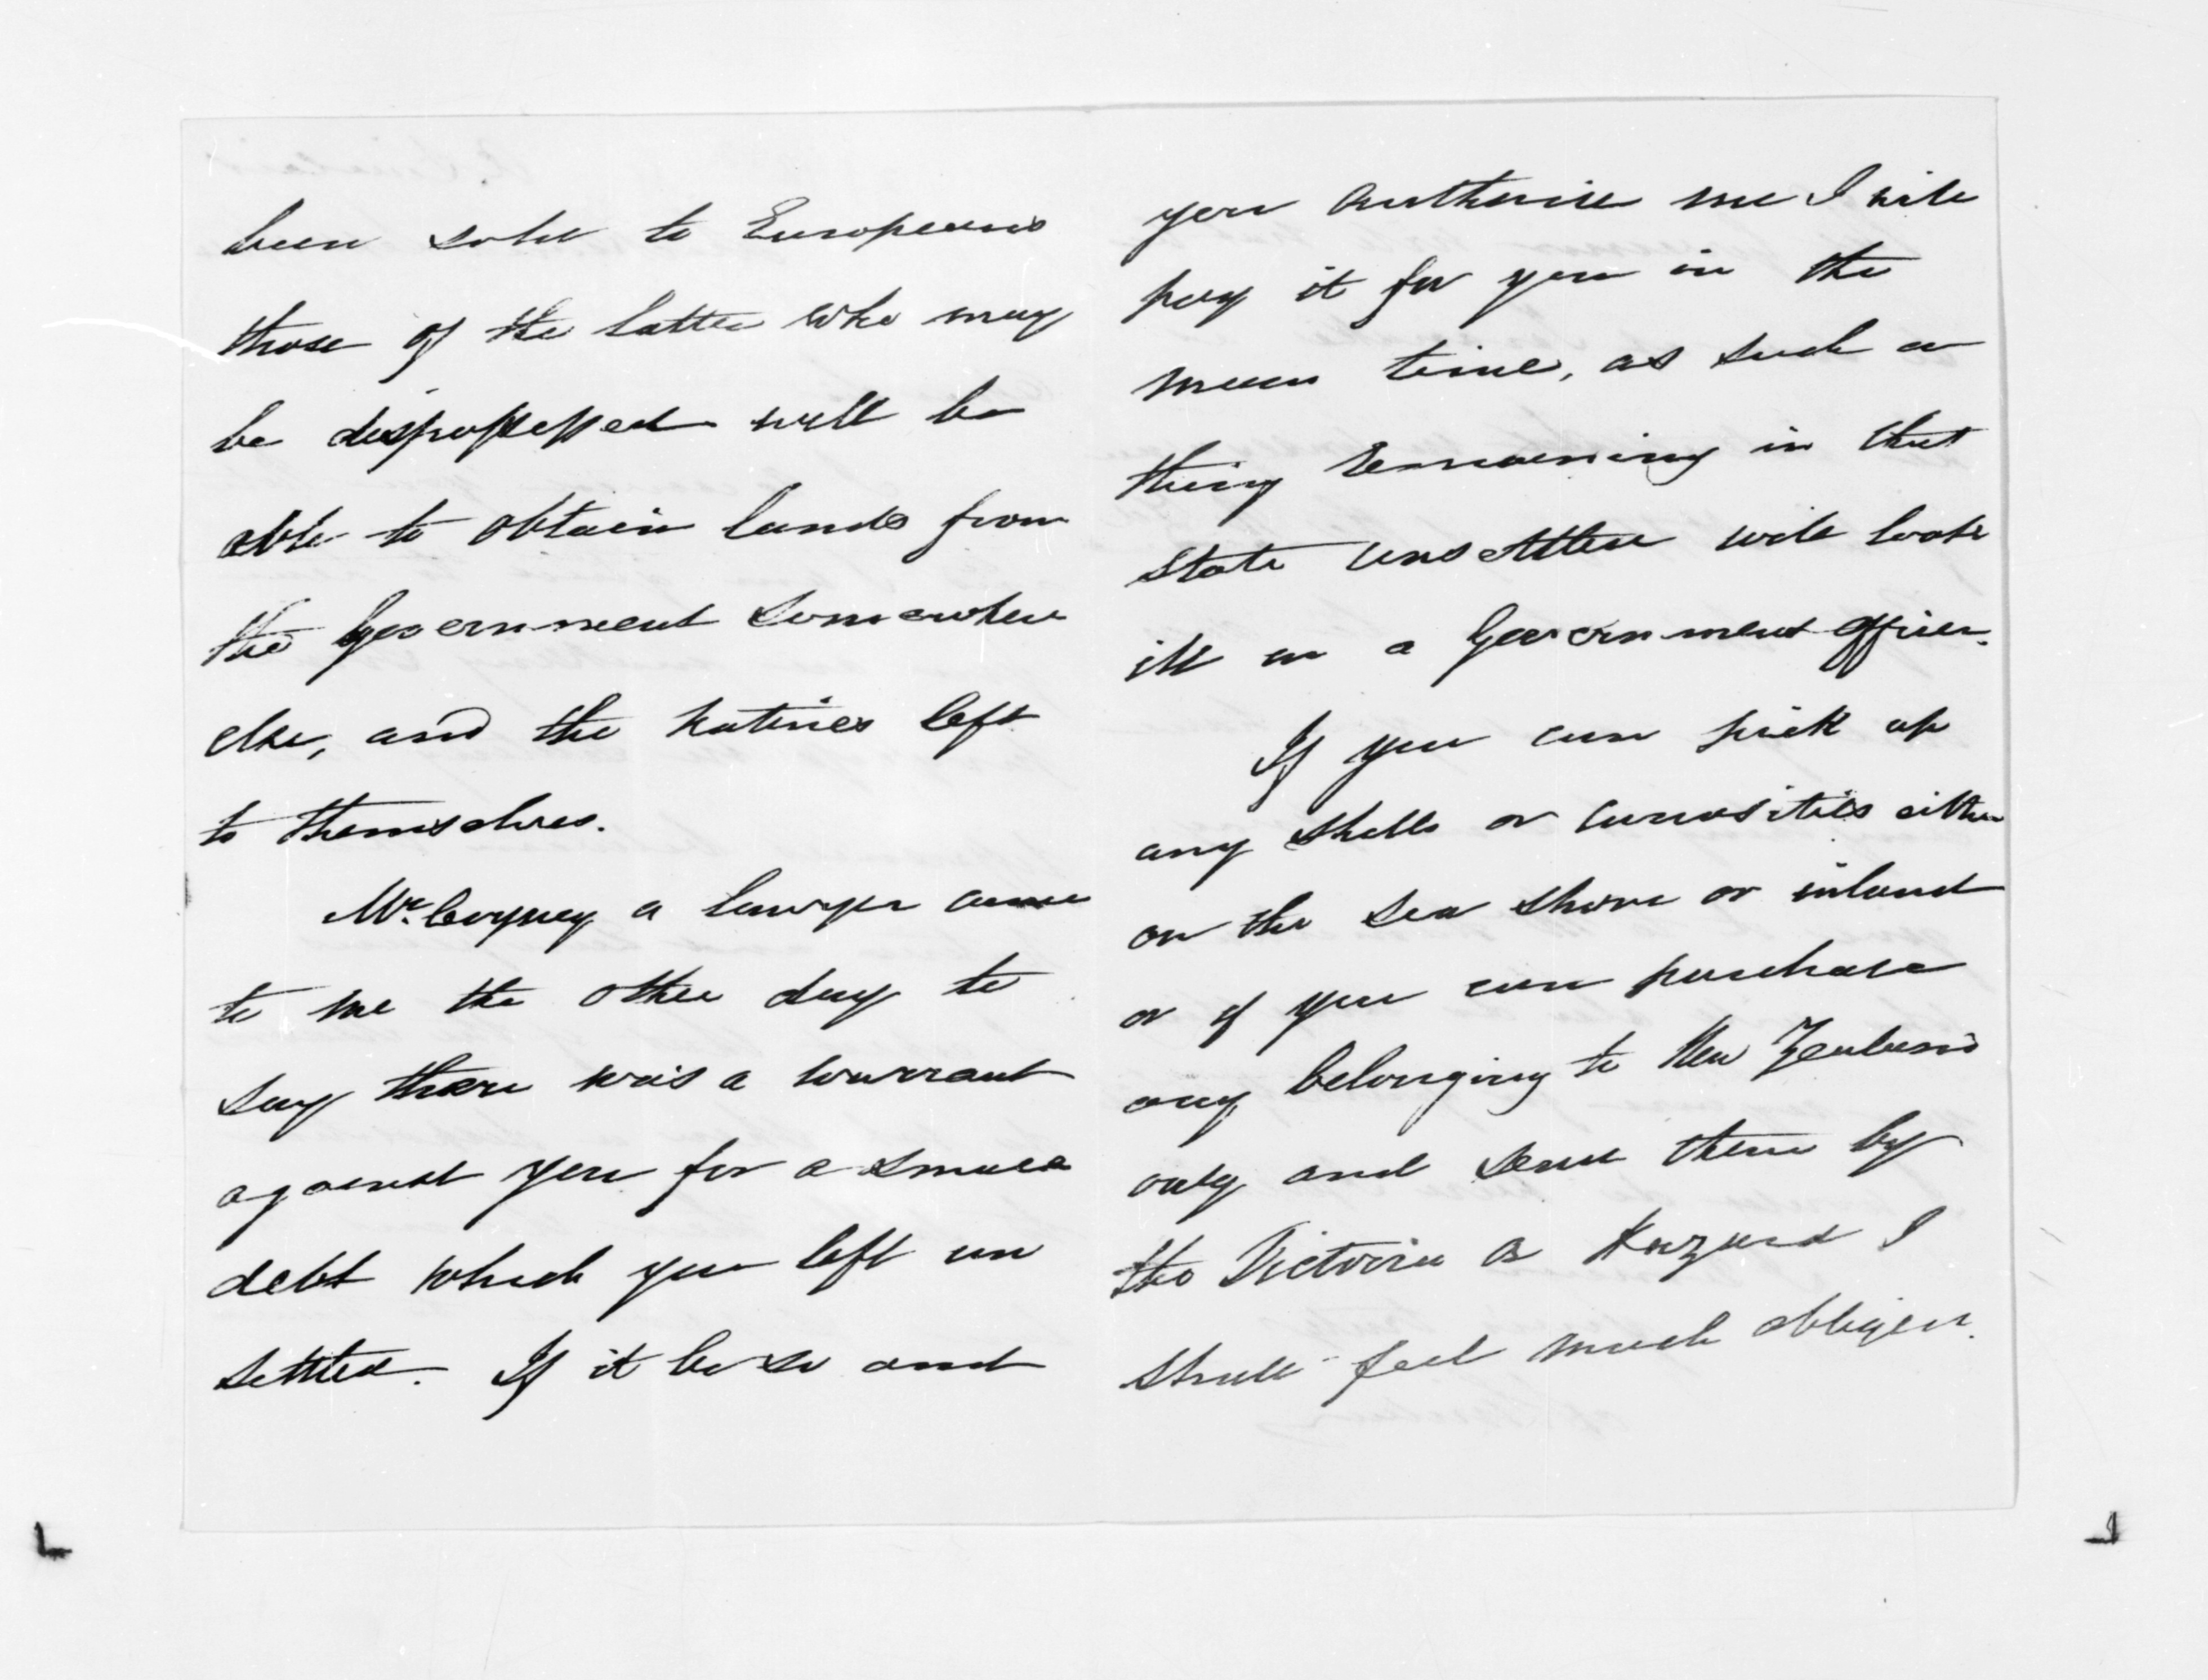 been sold to Europeans
those of the latter who may
be dispossessed will be
able to obtain lands from
the Government somewhere
else, and the natives left
to themselves.
Mr. a lawyer came
to me the other day to
say there was a warrant
against you for a small
debt which you left un
settled. If it be so and
you authorise me I will
pay it for you in the
mean time, as such a
thing remaining in that
state unsettled will look
ill in a Government officer.
If you can pick up
any shells or curiosities either
on the sea shore or inland
or if you can purchase
any belonging to New Zealand
only and send them by
the Victoria or Hazard I
shall feel much obliged.